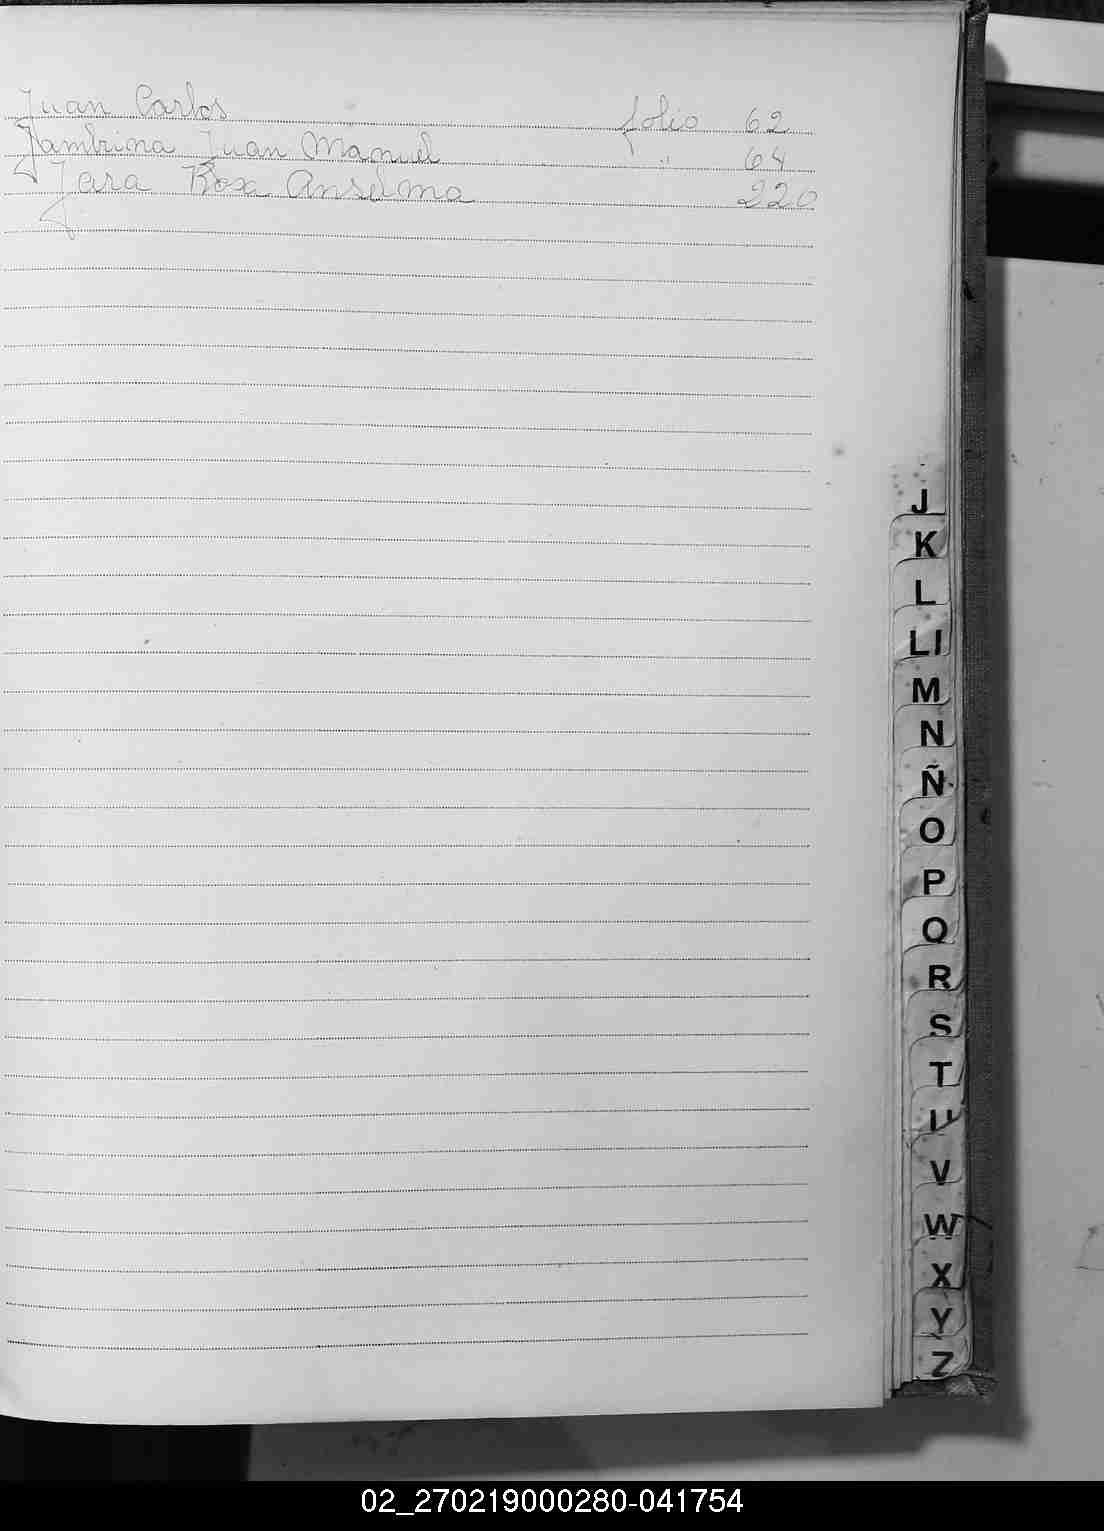 Juan Carlos folio 62
Jambrina Juan Manuel " 64
Jara Rosa Anselma 220
J
K
L
Ll
M
N
Ñ
O
P
Q
R
S
T
U
V
W
X
Y
Z
02_270219000280-041754